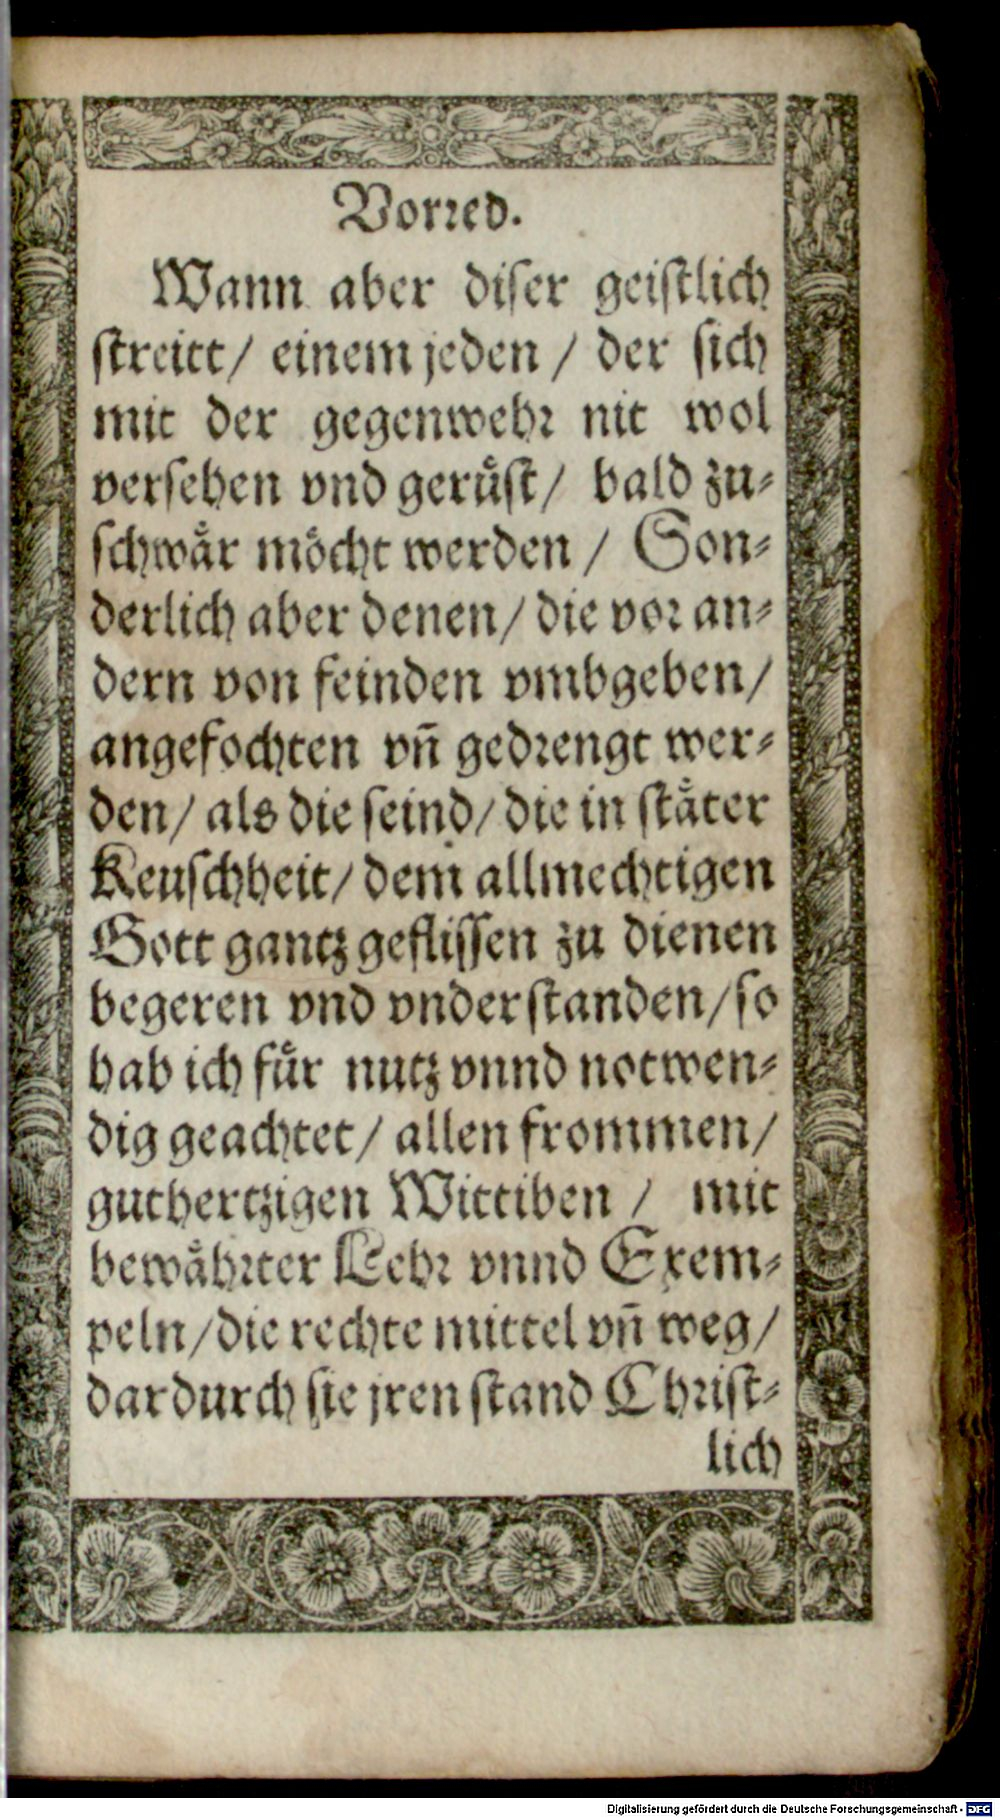 Vorꝛed.
Wann aber diser geistlich
streitt/ einem jeden / der sich
mit der gegenwehꝛ nit wol
versehen vnd geruͤst/ bald zu-
schwaͤr moͤcht werden / Son-
derlich aber denen/ die voꝛ an-
dern von feinden vmbgeben/
angefochten vn̄ gedꝛengt wer-
den/ als die seind/ die in staͤter
Keuschheit/ dem allmechtigen
Gott gantz geflissen zu dienen
begeren vnd vnderstanden/ so
hab ich fuͤr nutz vnnd notwen-
dig geachtet/ allen frommen/
guthertzigen Wittiben / mit
bewaͤhꝛter Lehꝛ vnnd Exem-
peln/ die rechte mittel vn̄ weg/
dardurch sie jren stand Chꝛist-
lich
Digitalisierung gefördert durch die Deutsche Forschungsgemeinschaft - DFG